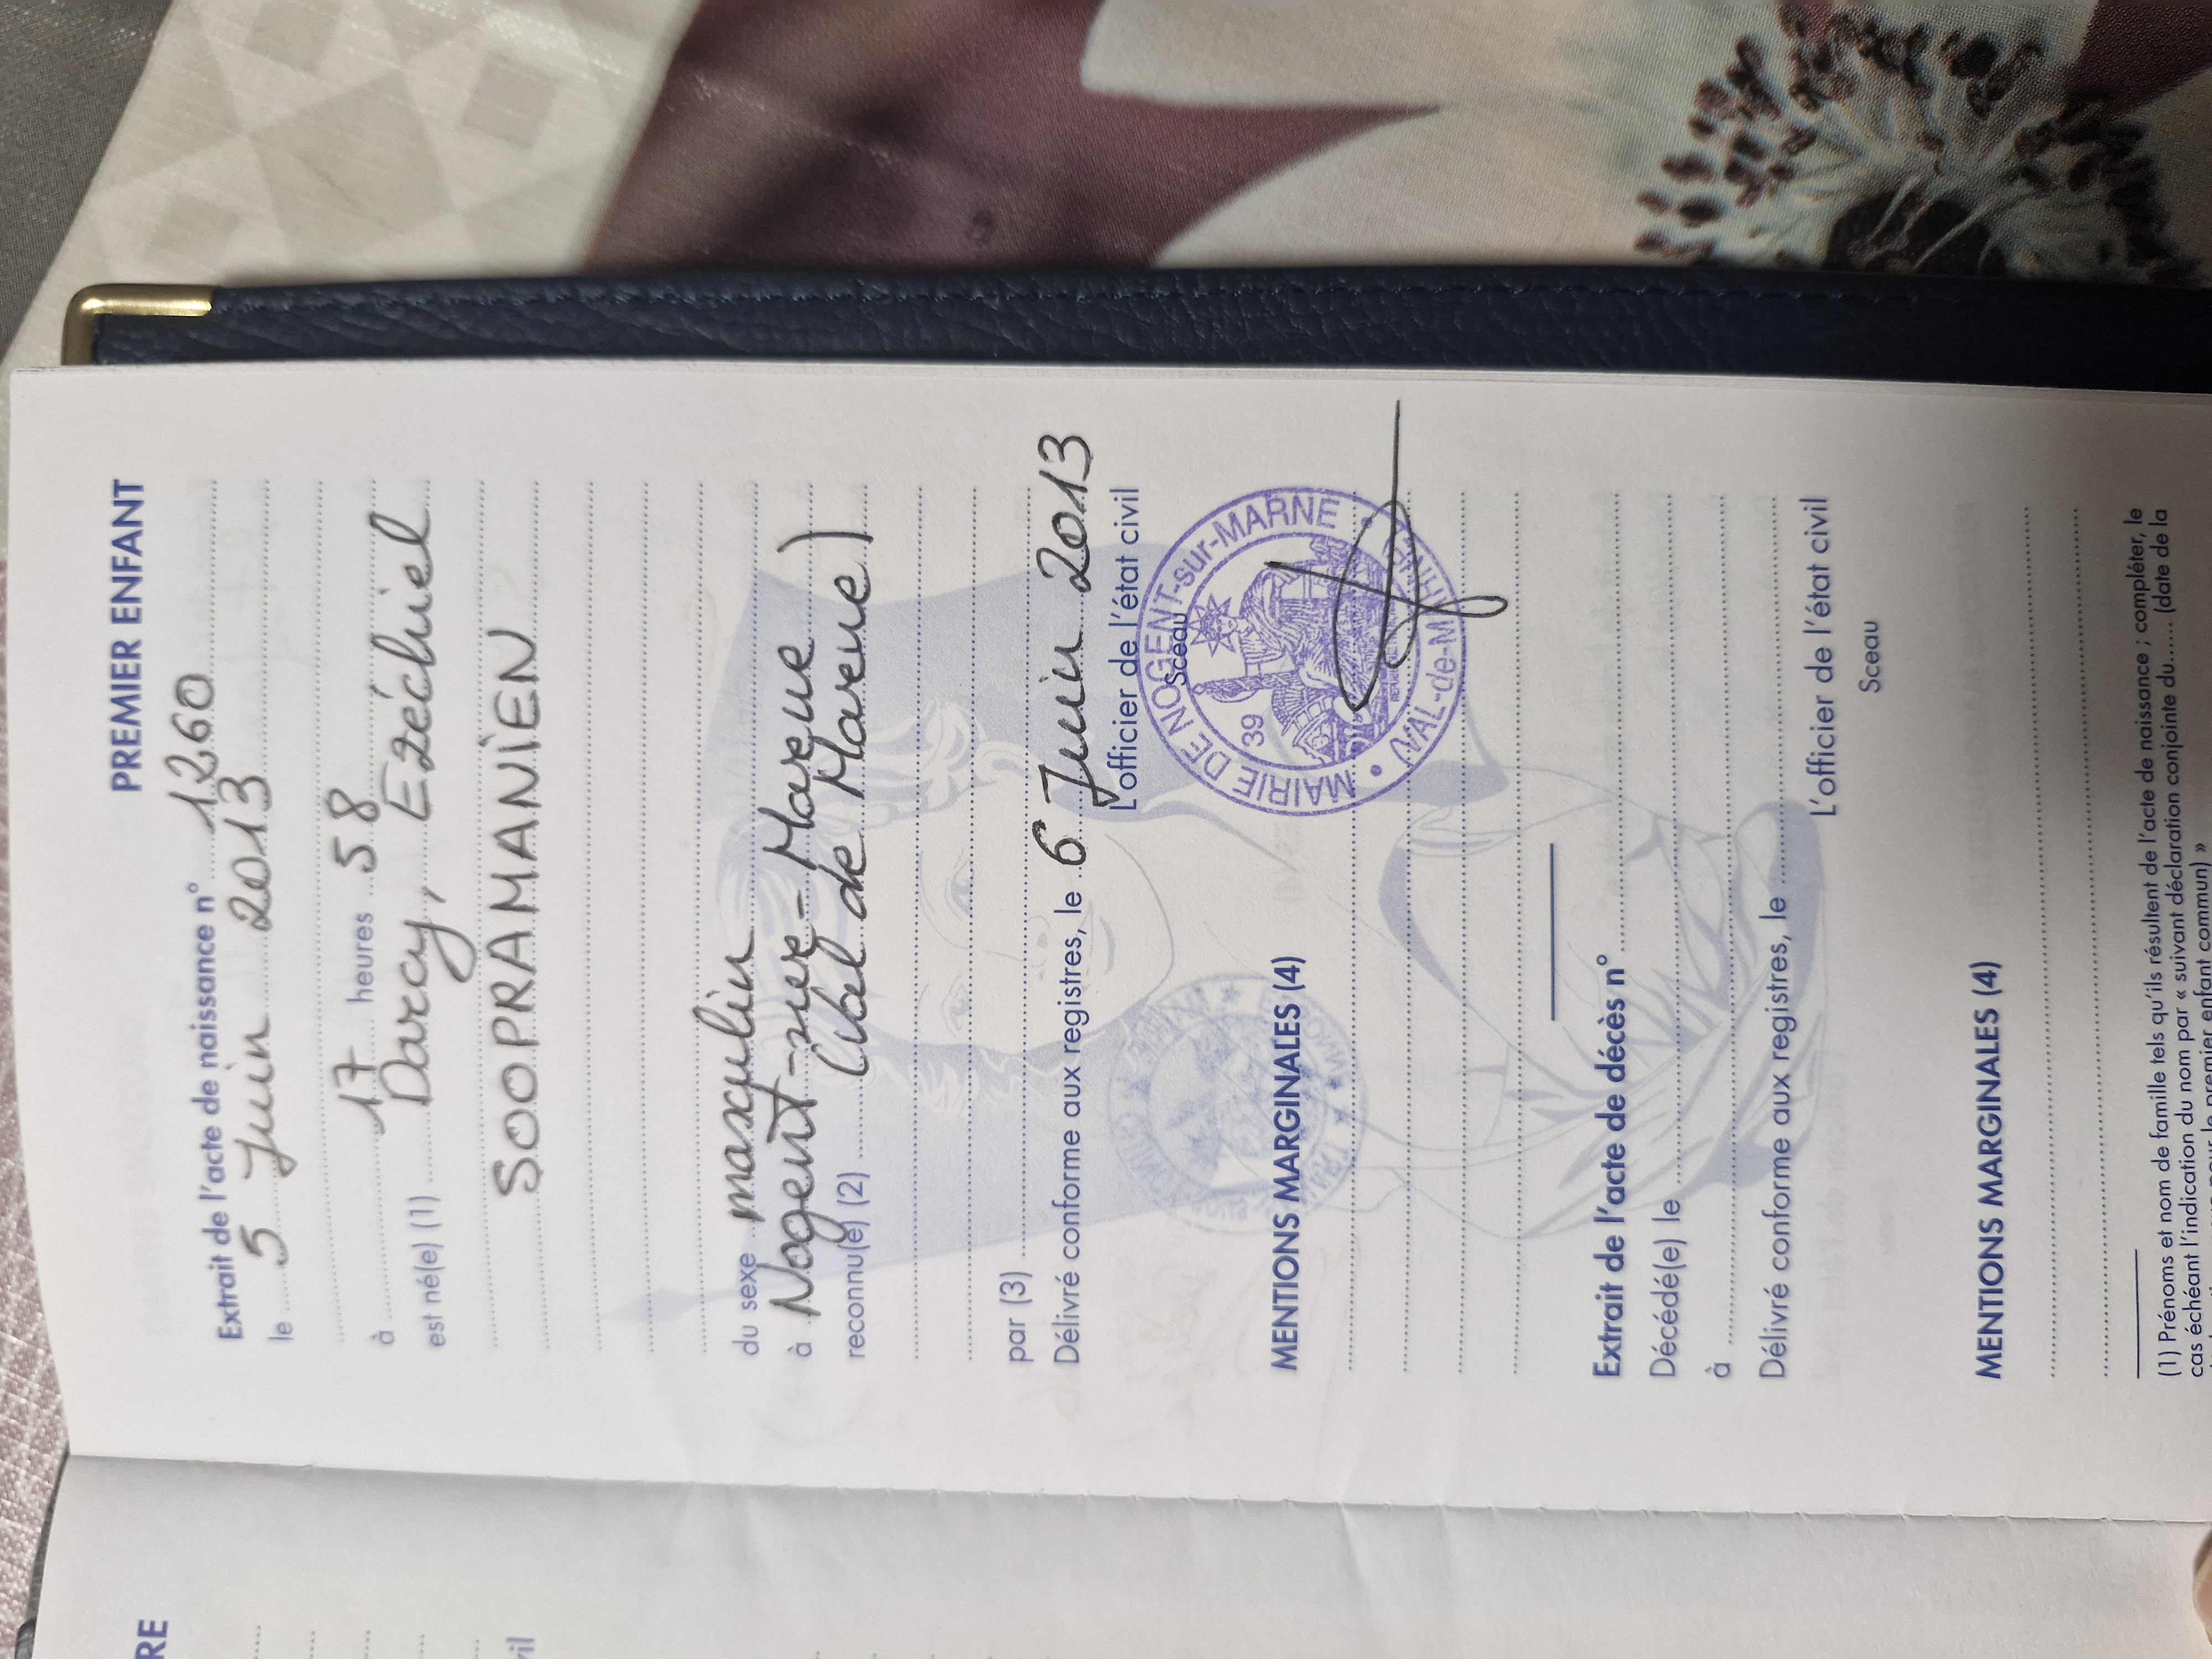 PREMIER ENFANT
Extrait de l'acte de naissance n° 1260
le 5 Juin 2013
à 17 heures 58
est né(e) (1) Darcy, Ezéchiel
SOOPRAMANIEN
du sexe masculin
à Nogent-sur-Marne
reconnu(e) (2) (Val de Marne)
par (3)
Délivré conforme aux registres, le 6 Juin 2013
L'officier de l'état civil
Sceau
MAIRIE DE NOGENT-sur-MARNE
39
VAL-de-M
MENTIONS MARGINALES (4)
Extrait de l'acte de décès n°
Décédé(e) le
à
Délivré conforme aux registres, le
L'officier de l'état civil
Sceau
MENTIONS MARGINALES (4)
(1) Prénoms et nom de famille tels qu'ils résultent de l'acte de naissance ; compléter, le
cas échéant l'indication du nom par « suivant déclaration conjointe du...... (date de la
premier enfant commun) »
RE
vil